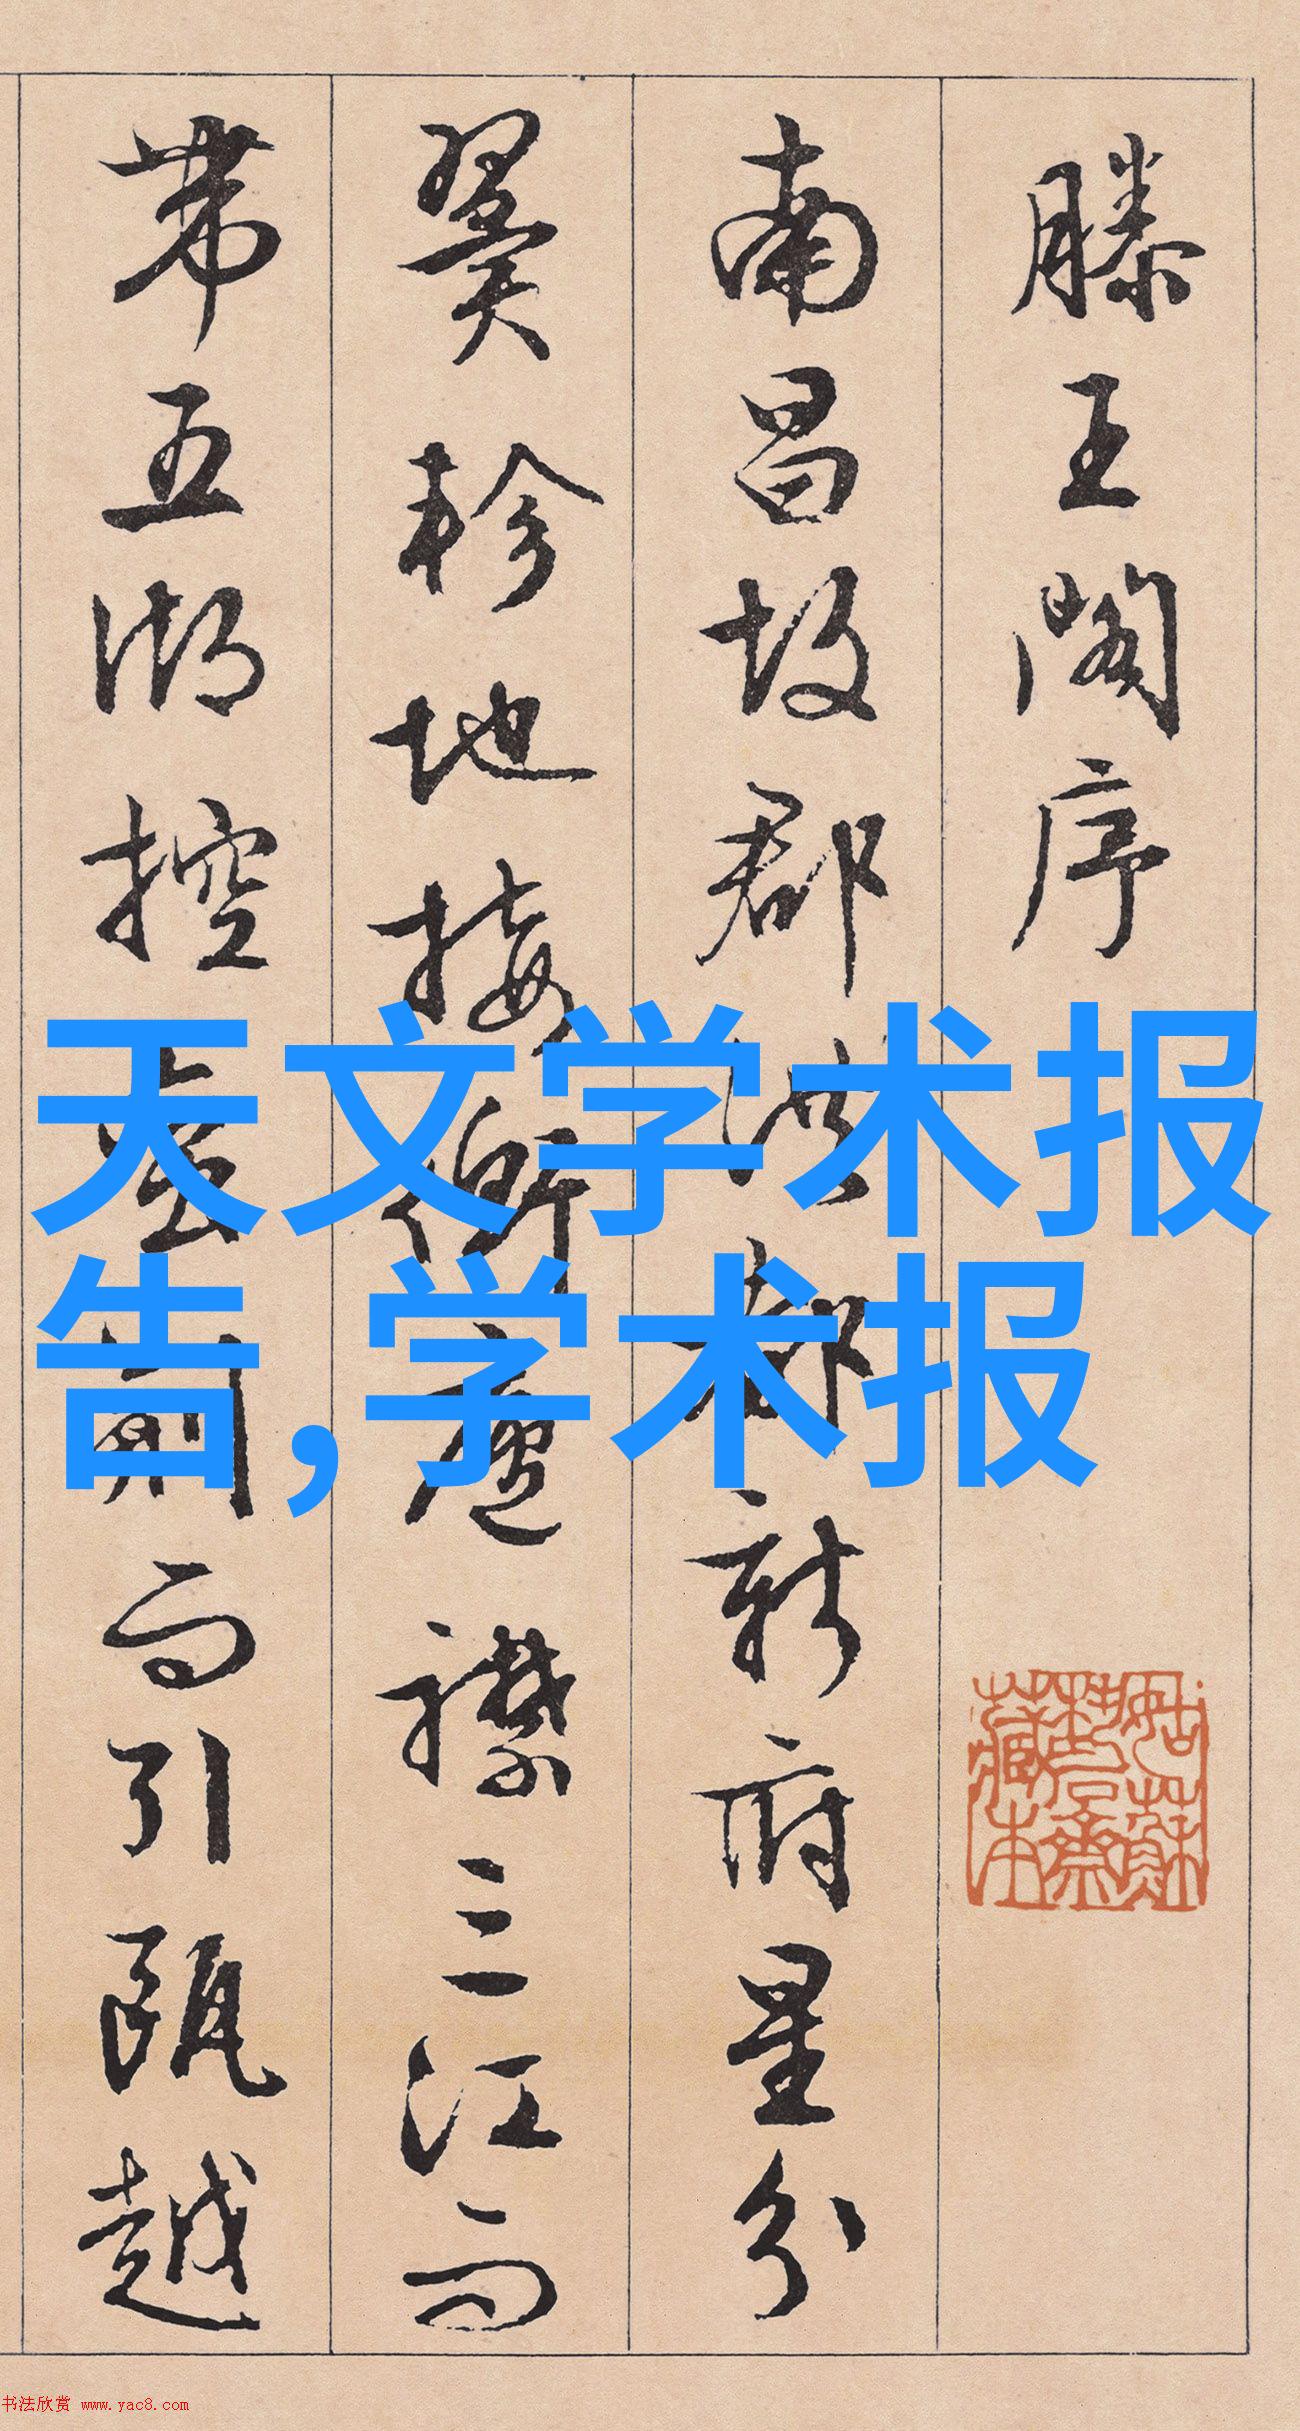 滕王阁序
南昌故郡洪都新府星分
翼轸地接衡庐襟三江而
带五湖控蛮荆而引瓯越
天文学术报
告,学术报
姑苏
藏本
书法欣赏 www.yac8.com